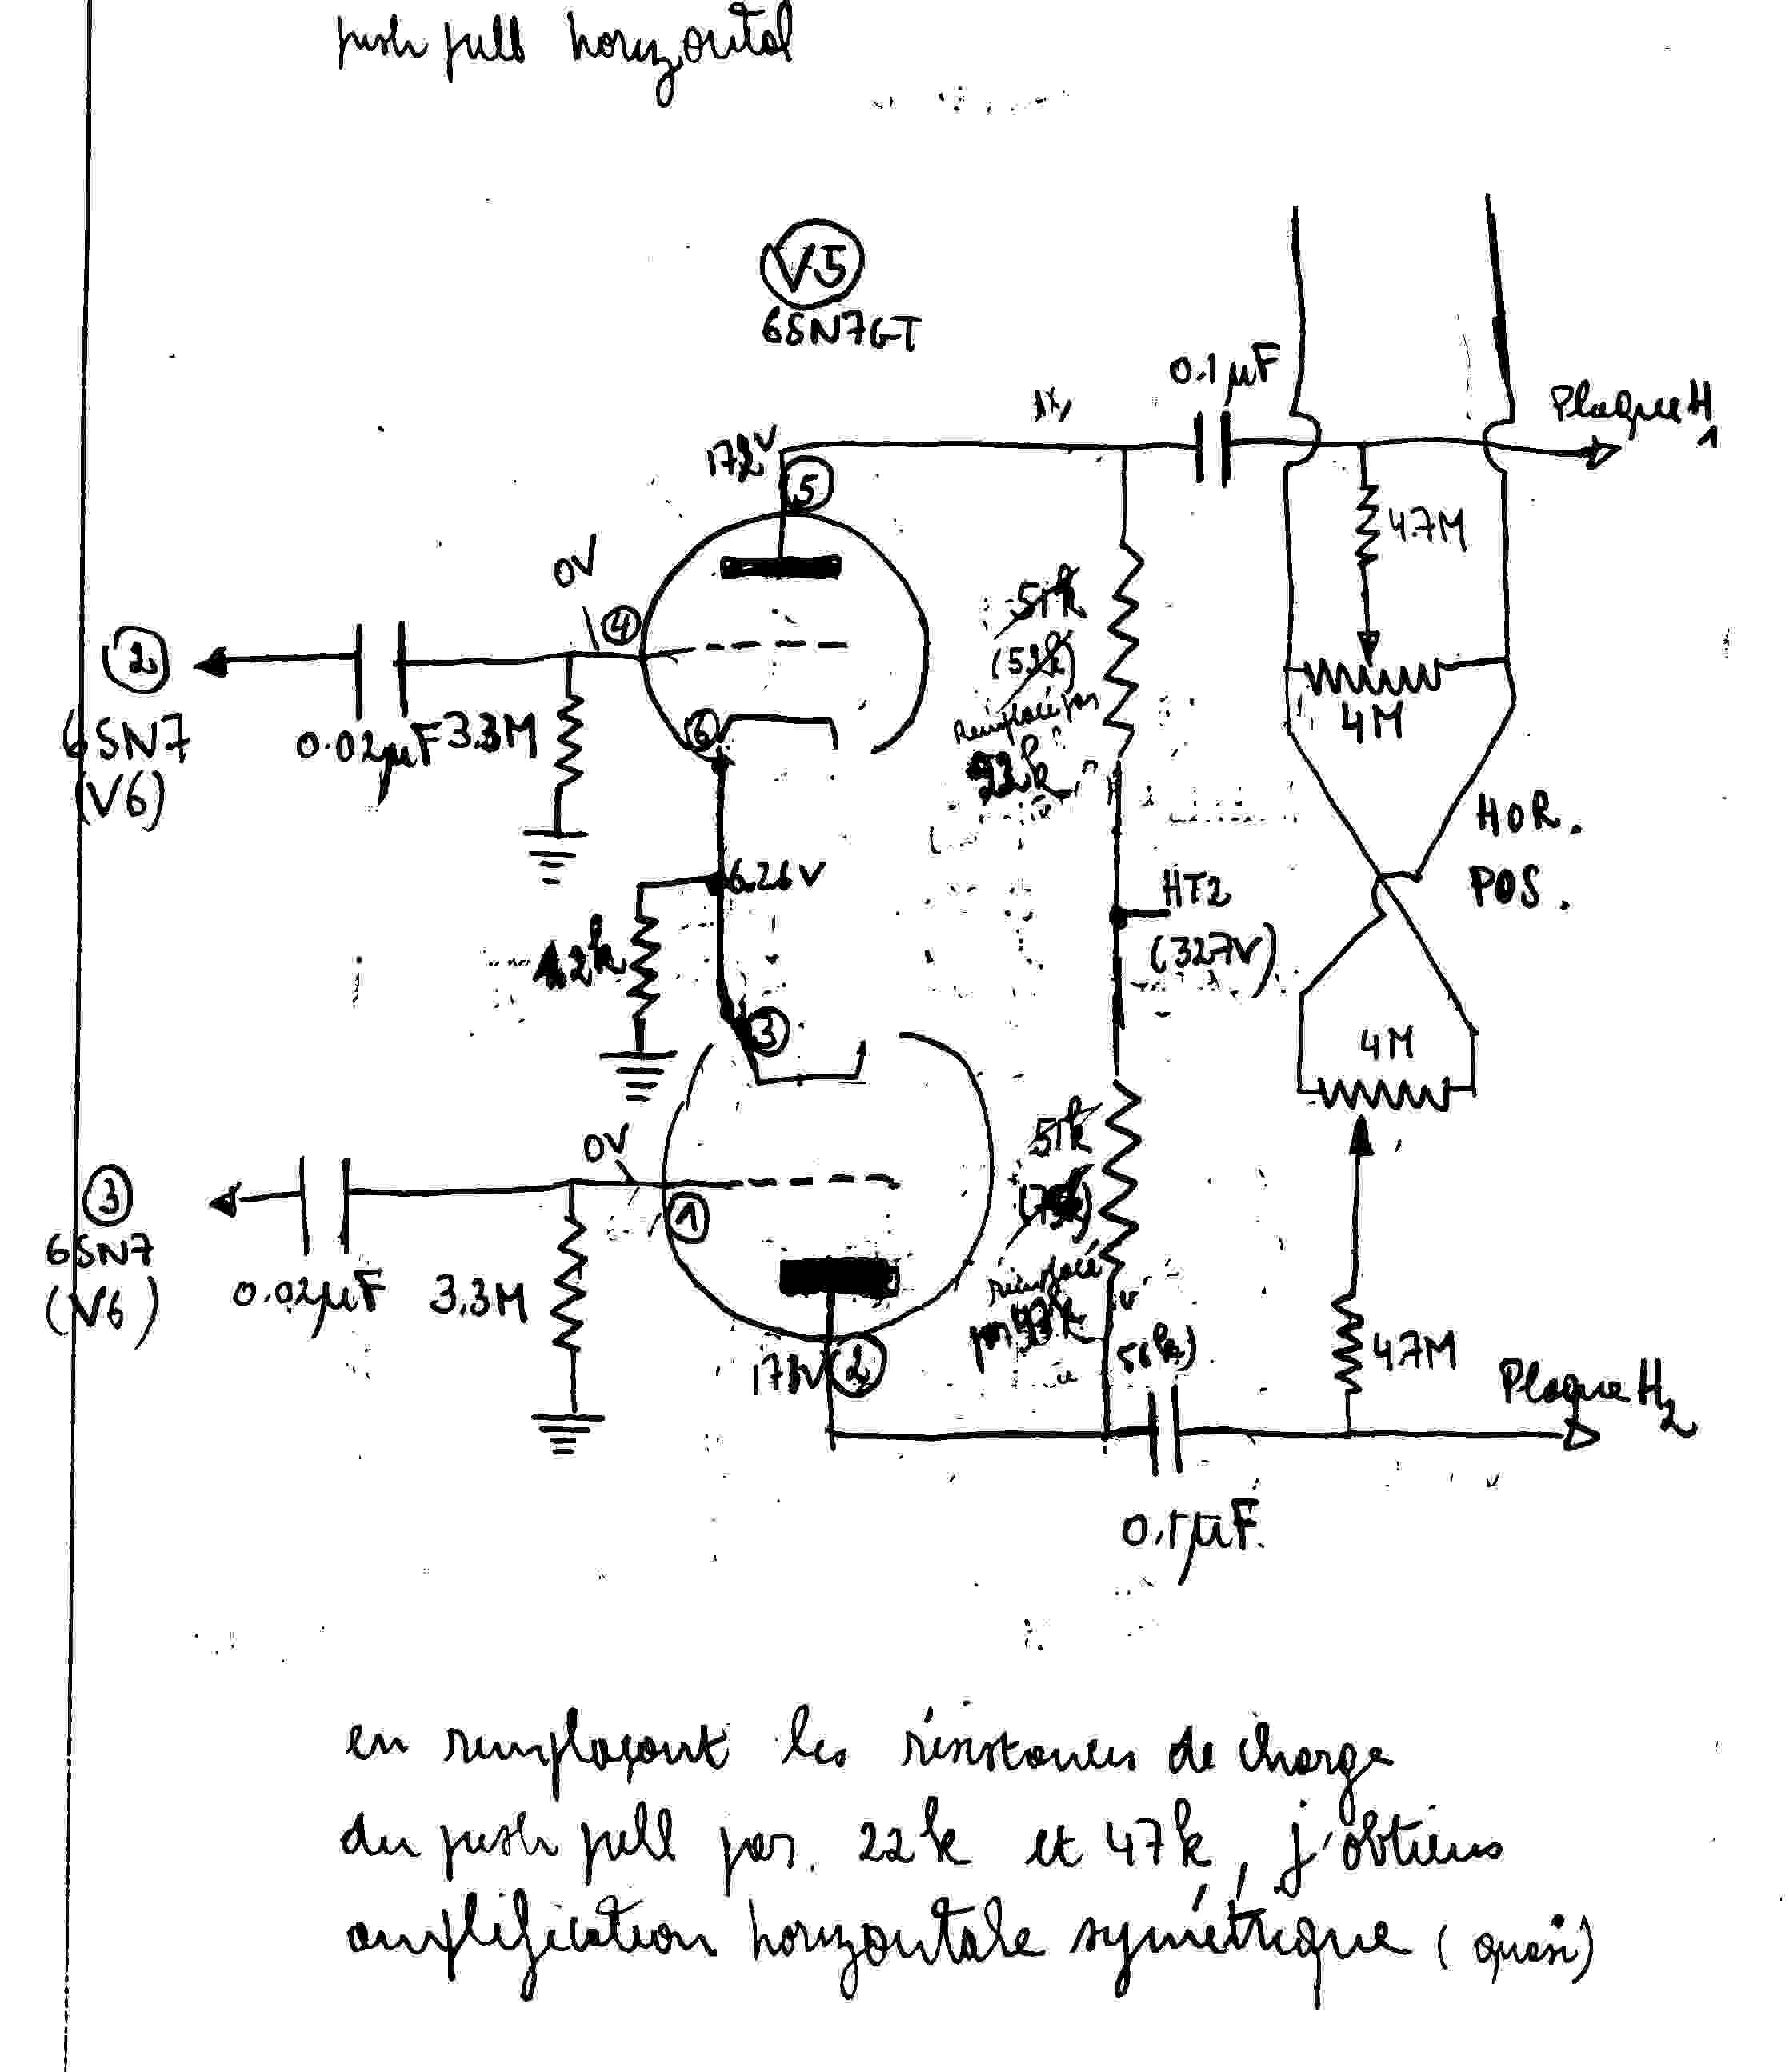 push pull horizontal
V5
6SN7GT
0.1µF
Plaque H1
5
4.7M
0V
4
51k
2
6SN7
(V6)
0.02µF
3.3M
6
remplacé par
4M
HOR.
POS.
6.26V
HT2
(327V)
3
4M
51k
0V
1
3
6SN7
(V6)
0.02µF
3.3M
remplacé
par
2
56k)
4.7M
Plaque H2
0.1µF
en remplaçant les résistances de charge
du push pull par 22k et 47k, j'obtiens
amplification horizontale symétrique (quasi)